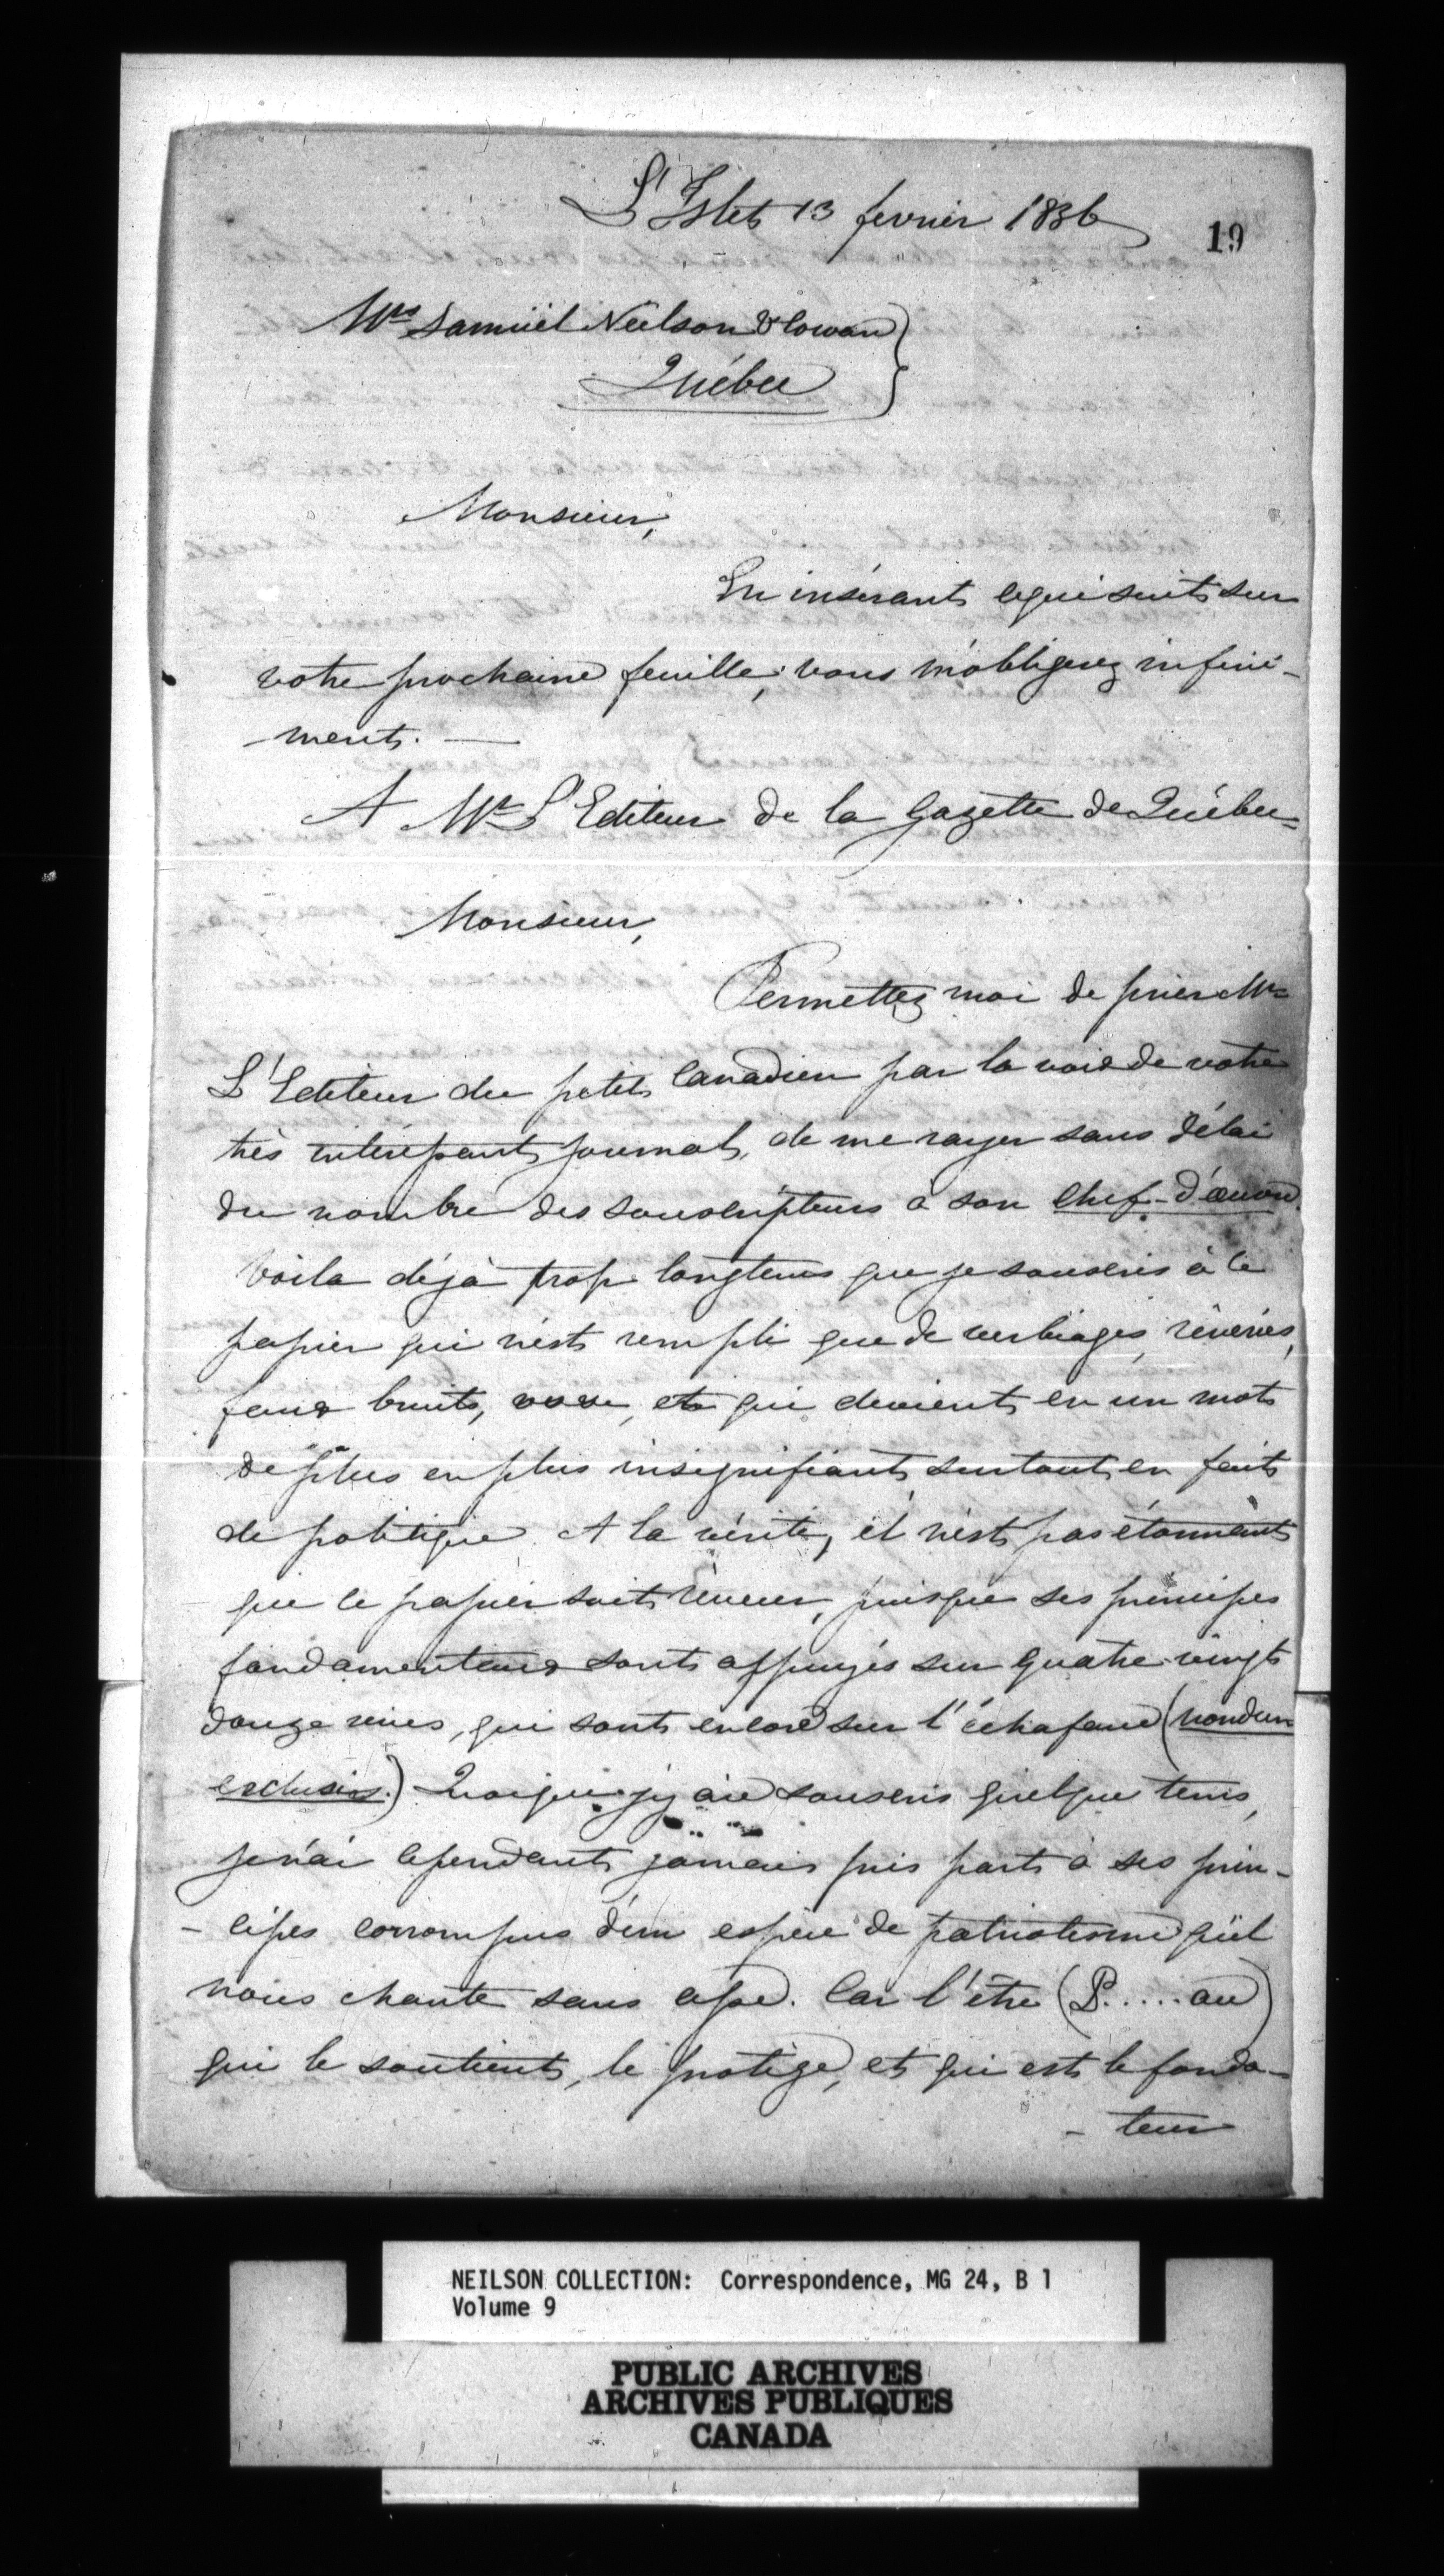 L'Islet 13 fevrier 1836
19
Mrs Samüel Neilson & Cowan
Québec
Monsieur,
En insérant ce qui suit sur
votre prochaine feuille, vous m'obligerez infini-
-ment. —
A Mr L'Editeur de la Gazette de Québec
Monsieur,
Permettez moi de prier Mr
L'Editeur du petit Canadien par la voie de votre
très intéressant journal, de me rayer sans délai
du nombre des souscripteurs à son chef-d'œuvre.
Voila déjà trop longtems que je souscris à ce
papier qui n'est rempli que de verbiages, rêveries,
faux bruits, et qui devient en un mot
de plus en plus insignifiant surtout en fait
de politique. A la vérité, il n'est pas étonnant
que ce papier soit rêveur, puisque ses principes
fondamentaux sont appuyés sur quatre-vingt
douze rêves, qui sont encore sur l'échafaud (nondum
exclusis.) Quoique j'y aie souscris quelque tems,
je n'ai cependant jamais pris part à ses prin-
-cipes corrompus d'un espèce de patriotisme qu'il
nous chante sans cesse. Car l'être (P.....au)
qui le soutient, le protège, et qui est le fonda-
-teur
NEILSON COLLECTION: Correspondence, MG 24, B 1
Volume 9
PUBLIC ARCHIVES
ARCHIVES PUBLIQUES
CANADA